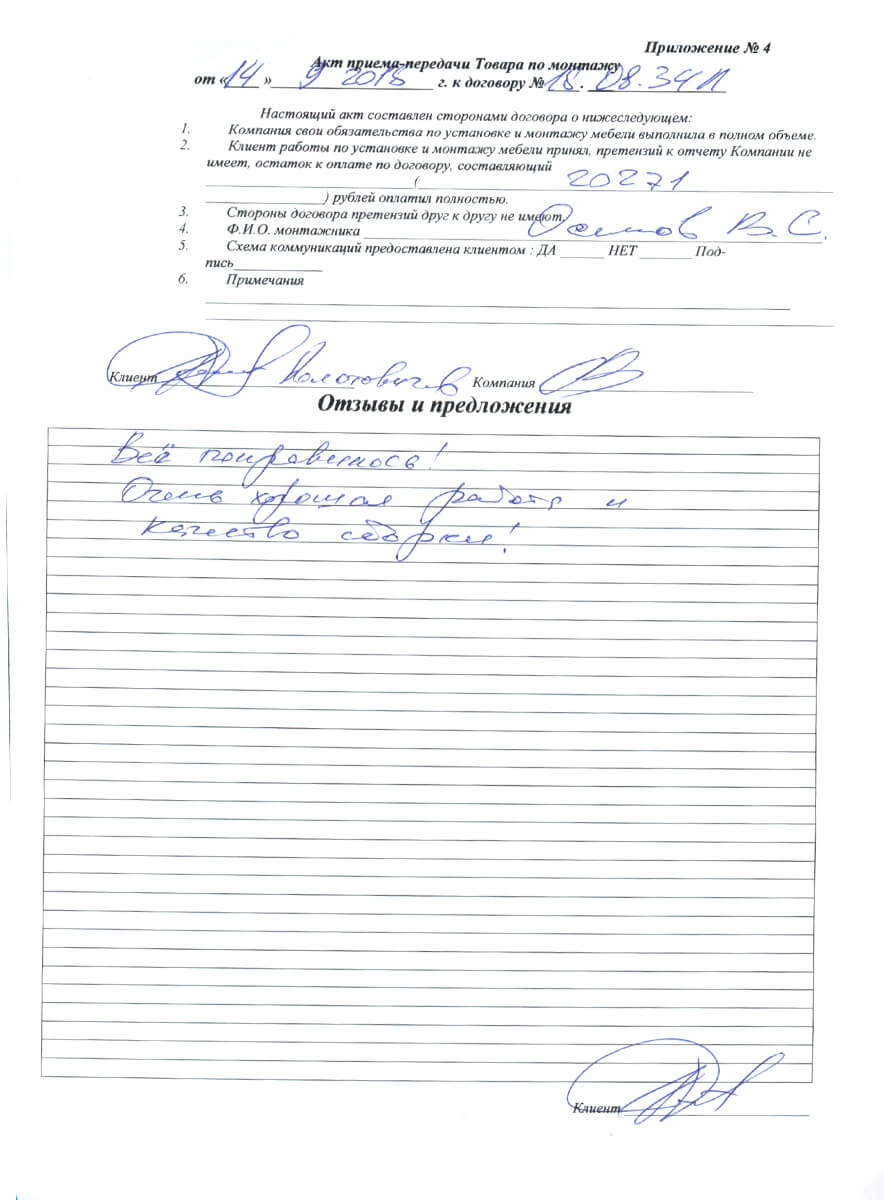 Приложение № 4
Акт приема-передачи Товара по монтажу
от «14» 9 2018 г. к договору № 18.08.34П
Настоящий акт составлен сторонами договора о нижеследующем:
1. Компания свои обязательства по установке и монтажу мебели выполнила в полном объеме.
2. Клиент работы по установке и монтажу мебели принял, претензий к отчету Компании не
имеет, остаток к оплате по договору, составляющий
( 20271
) рублей оплатил полностью.
3. Стороны договора претензий друг к другу не имеют.
4. Ф.И.О. монтажника Осипов В.С.
5. Схема коммуникаций предоставлена клиентом : ДА НЕТ Под-
пись
6. Примечания
Клиент Компания
Отзывы и предложения
Всё понравилось!
Очень хорошая работа и
качество сборки!
Клиент